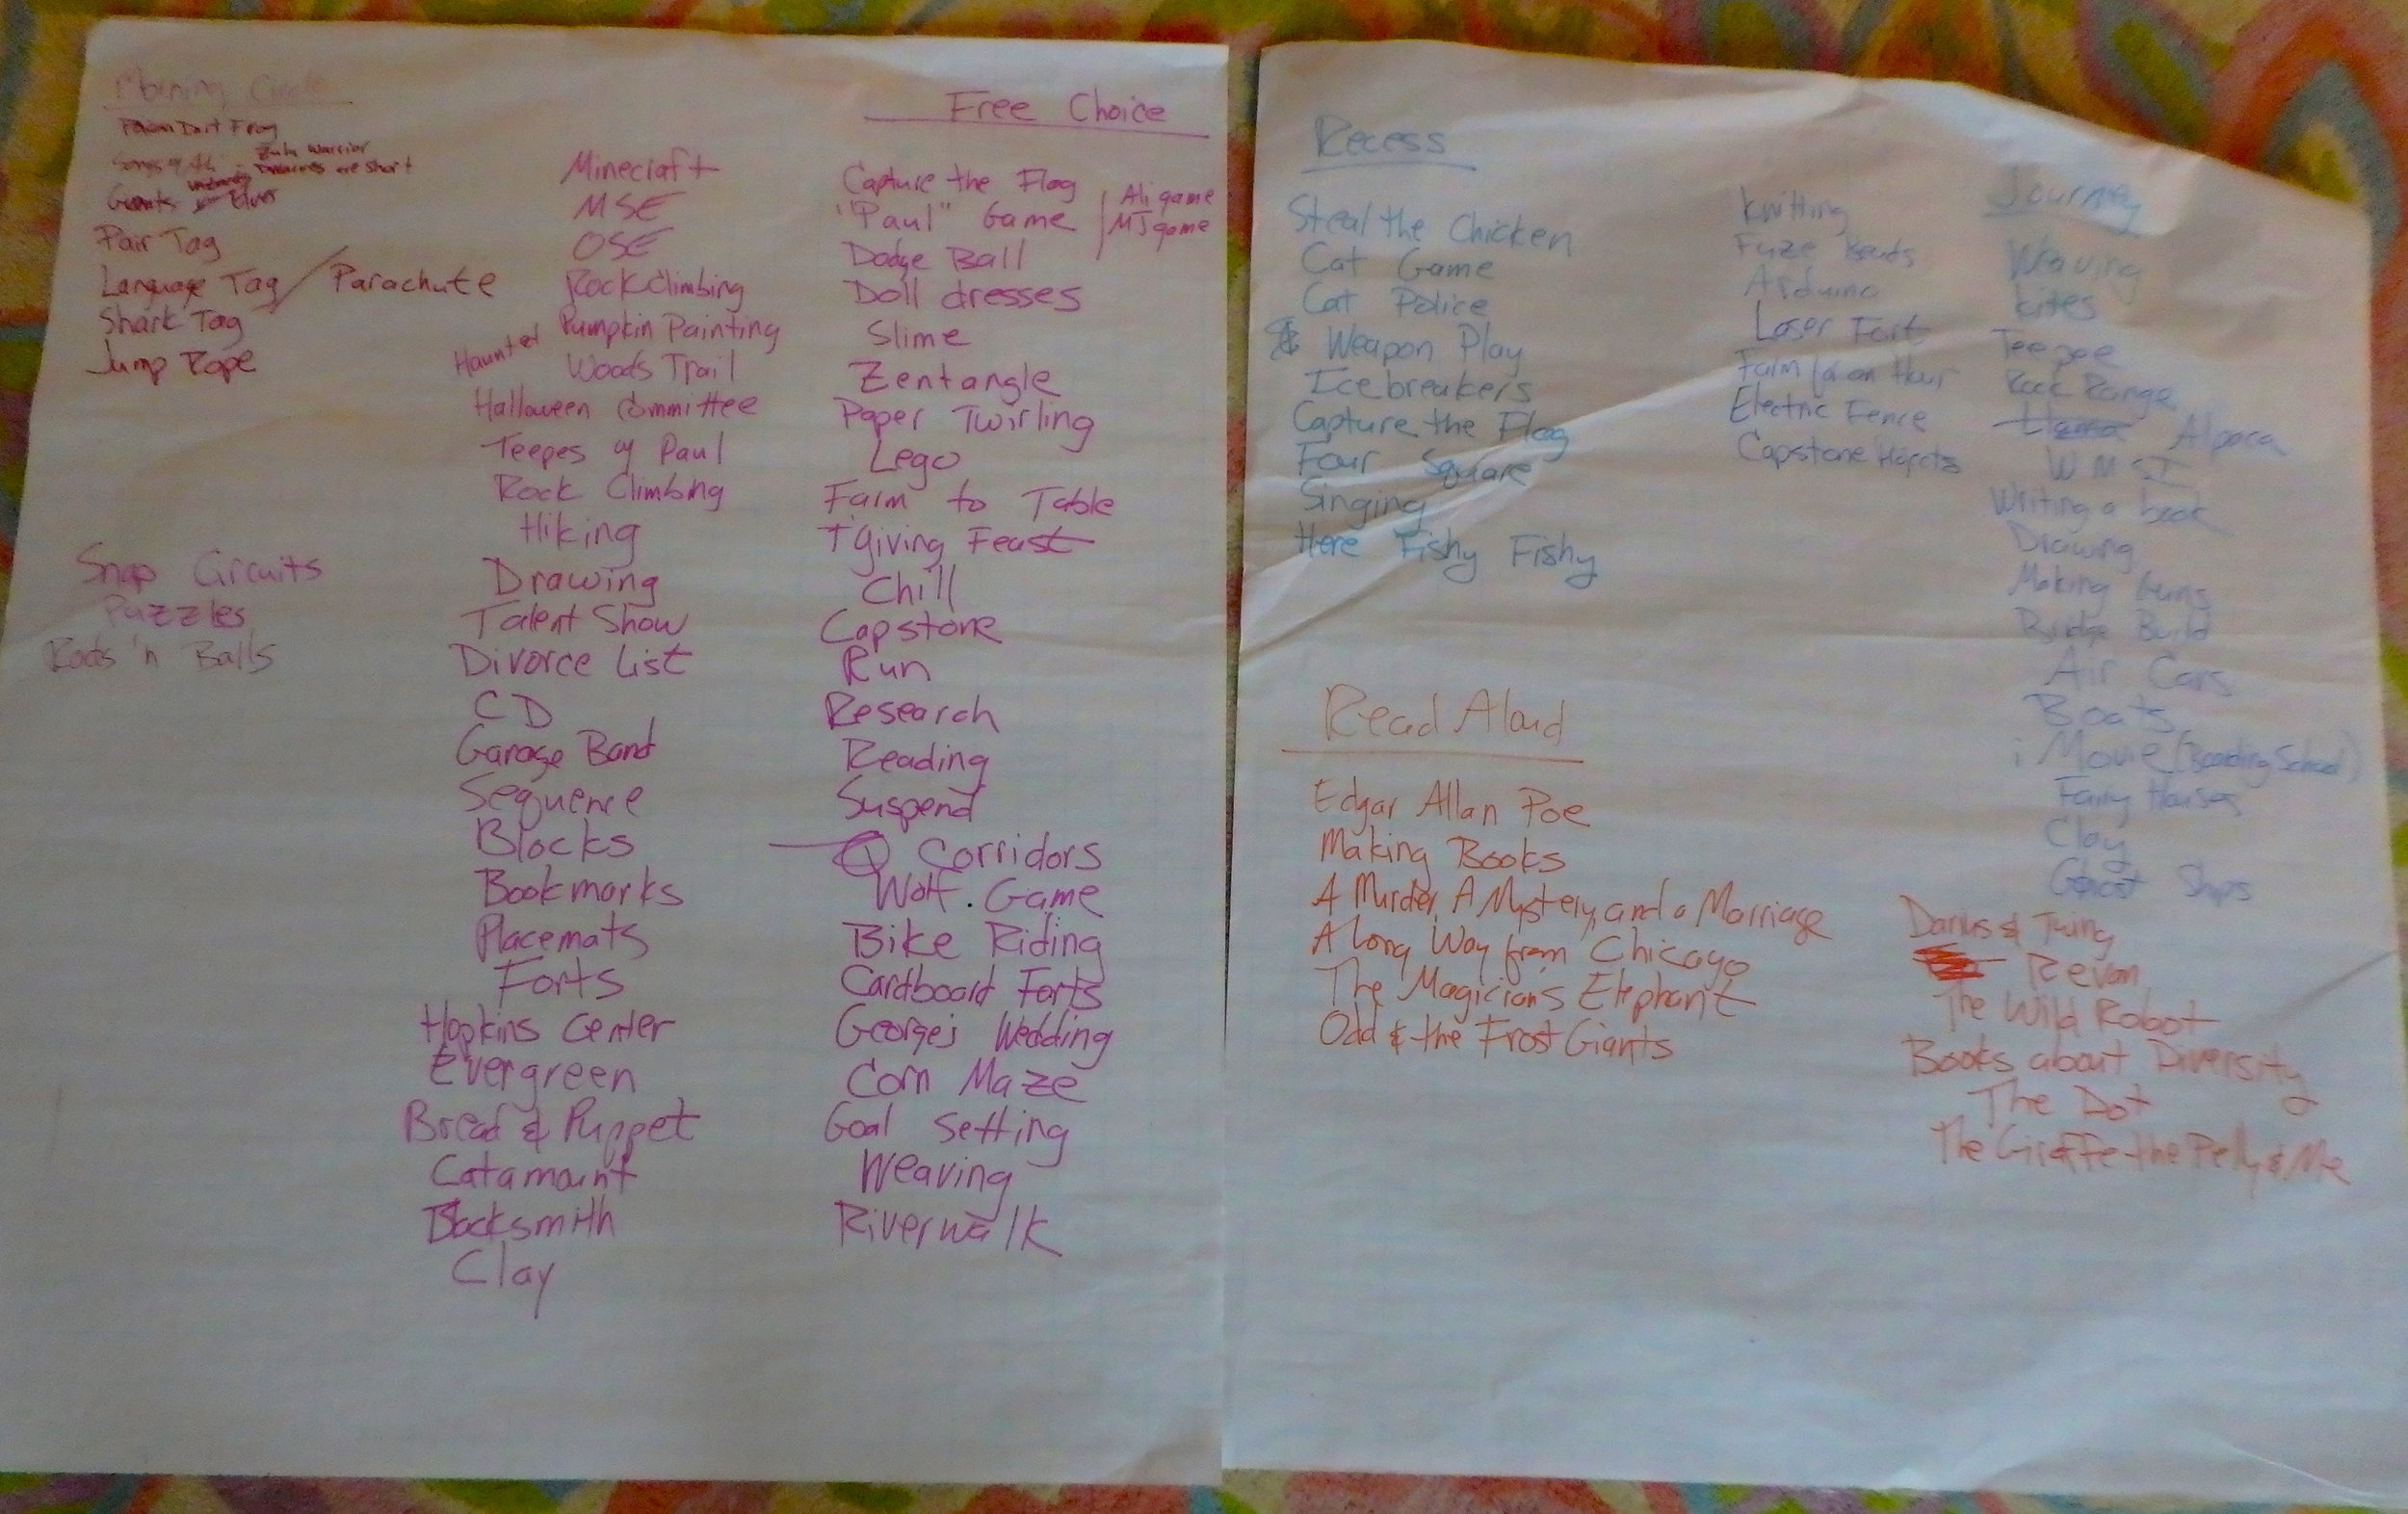 Morning Circle
Poison Dart Frog
Songs of
Zulu Warrior
Dwarves are short
Giants Wizards Elves
Pair Tag
Language Tag / Parachute
Shark Tag
Jump Rope
Snap Circuits
Puzzles
Rods 'n Balls
Free Choice
Minecraft
MSE
OSE
Rock Climbing
Pumpkin Painting
Haunted Woods Trail
Halloween Committee
Teepes of Paul
Rock Climbing
Hiking
Drawing
Talent Show
Divorce List
CD
Garage Band
Sequence
Blocks
Bookmarks
Placemats
Forts
Hopkins Center
Evergreen
Bread & Puppet
Catamount
Blacksmith
Clay
Capture the Flag
"Paul" Game | Ali game
MJ game
Dodge Ball
Doll dresses
Slime
Zentangle
Paper Twirling
Lego
Farm to Table
T'giving Feast
Chill
Capstone
Run
Research
Reading
Suspend
Q Corridors
Wolf. Game
Bike Riding
Cardboard Forts
George's Wedding
Corn Maze
Goal Setting
Weaving
Riverwalk
Recess
Steal the Chicken
Cat Game
Cat Police
Weapon Play
Icebreakers
Capture the Flag
Four Square
Singing
Here Fishy Fishy
Journey
Knitting
Fuze Beads
Arduino
Laser Fort
Farm for an Hour
Electric Fence
Capstone
Weaving
Kites
Teepee
Rock Range
Llama Alpaca
WMSI
Writing a book
Drawing
Making Guns
Bridge Build
Air Cars
Boats
iMovie (Boarding School)
Fairy Houses
Clay
Ghost Ships
Read Aloud
Edgar Allan Poe
Making Books
A Murder, A Mystery, and a Marriage
A Long Way from Chicago
The Magician's Elephant
Odd & the Frost Giants
Darius & Twig
Revan
The Wild Robot
Books about Diversity
The Dot
The Giraffe the Pelly & Me